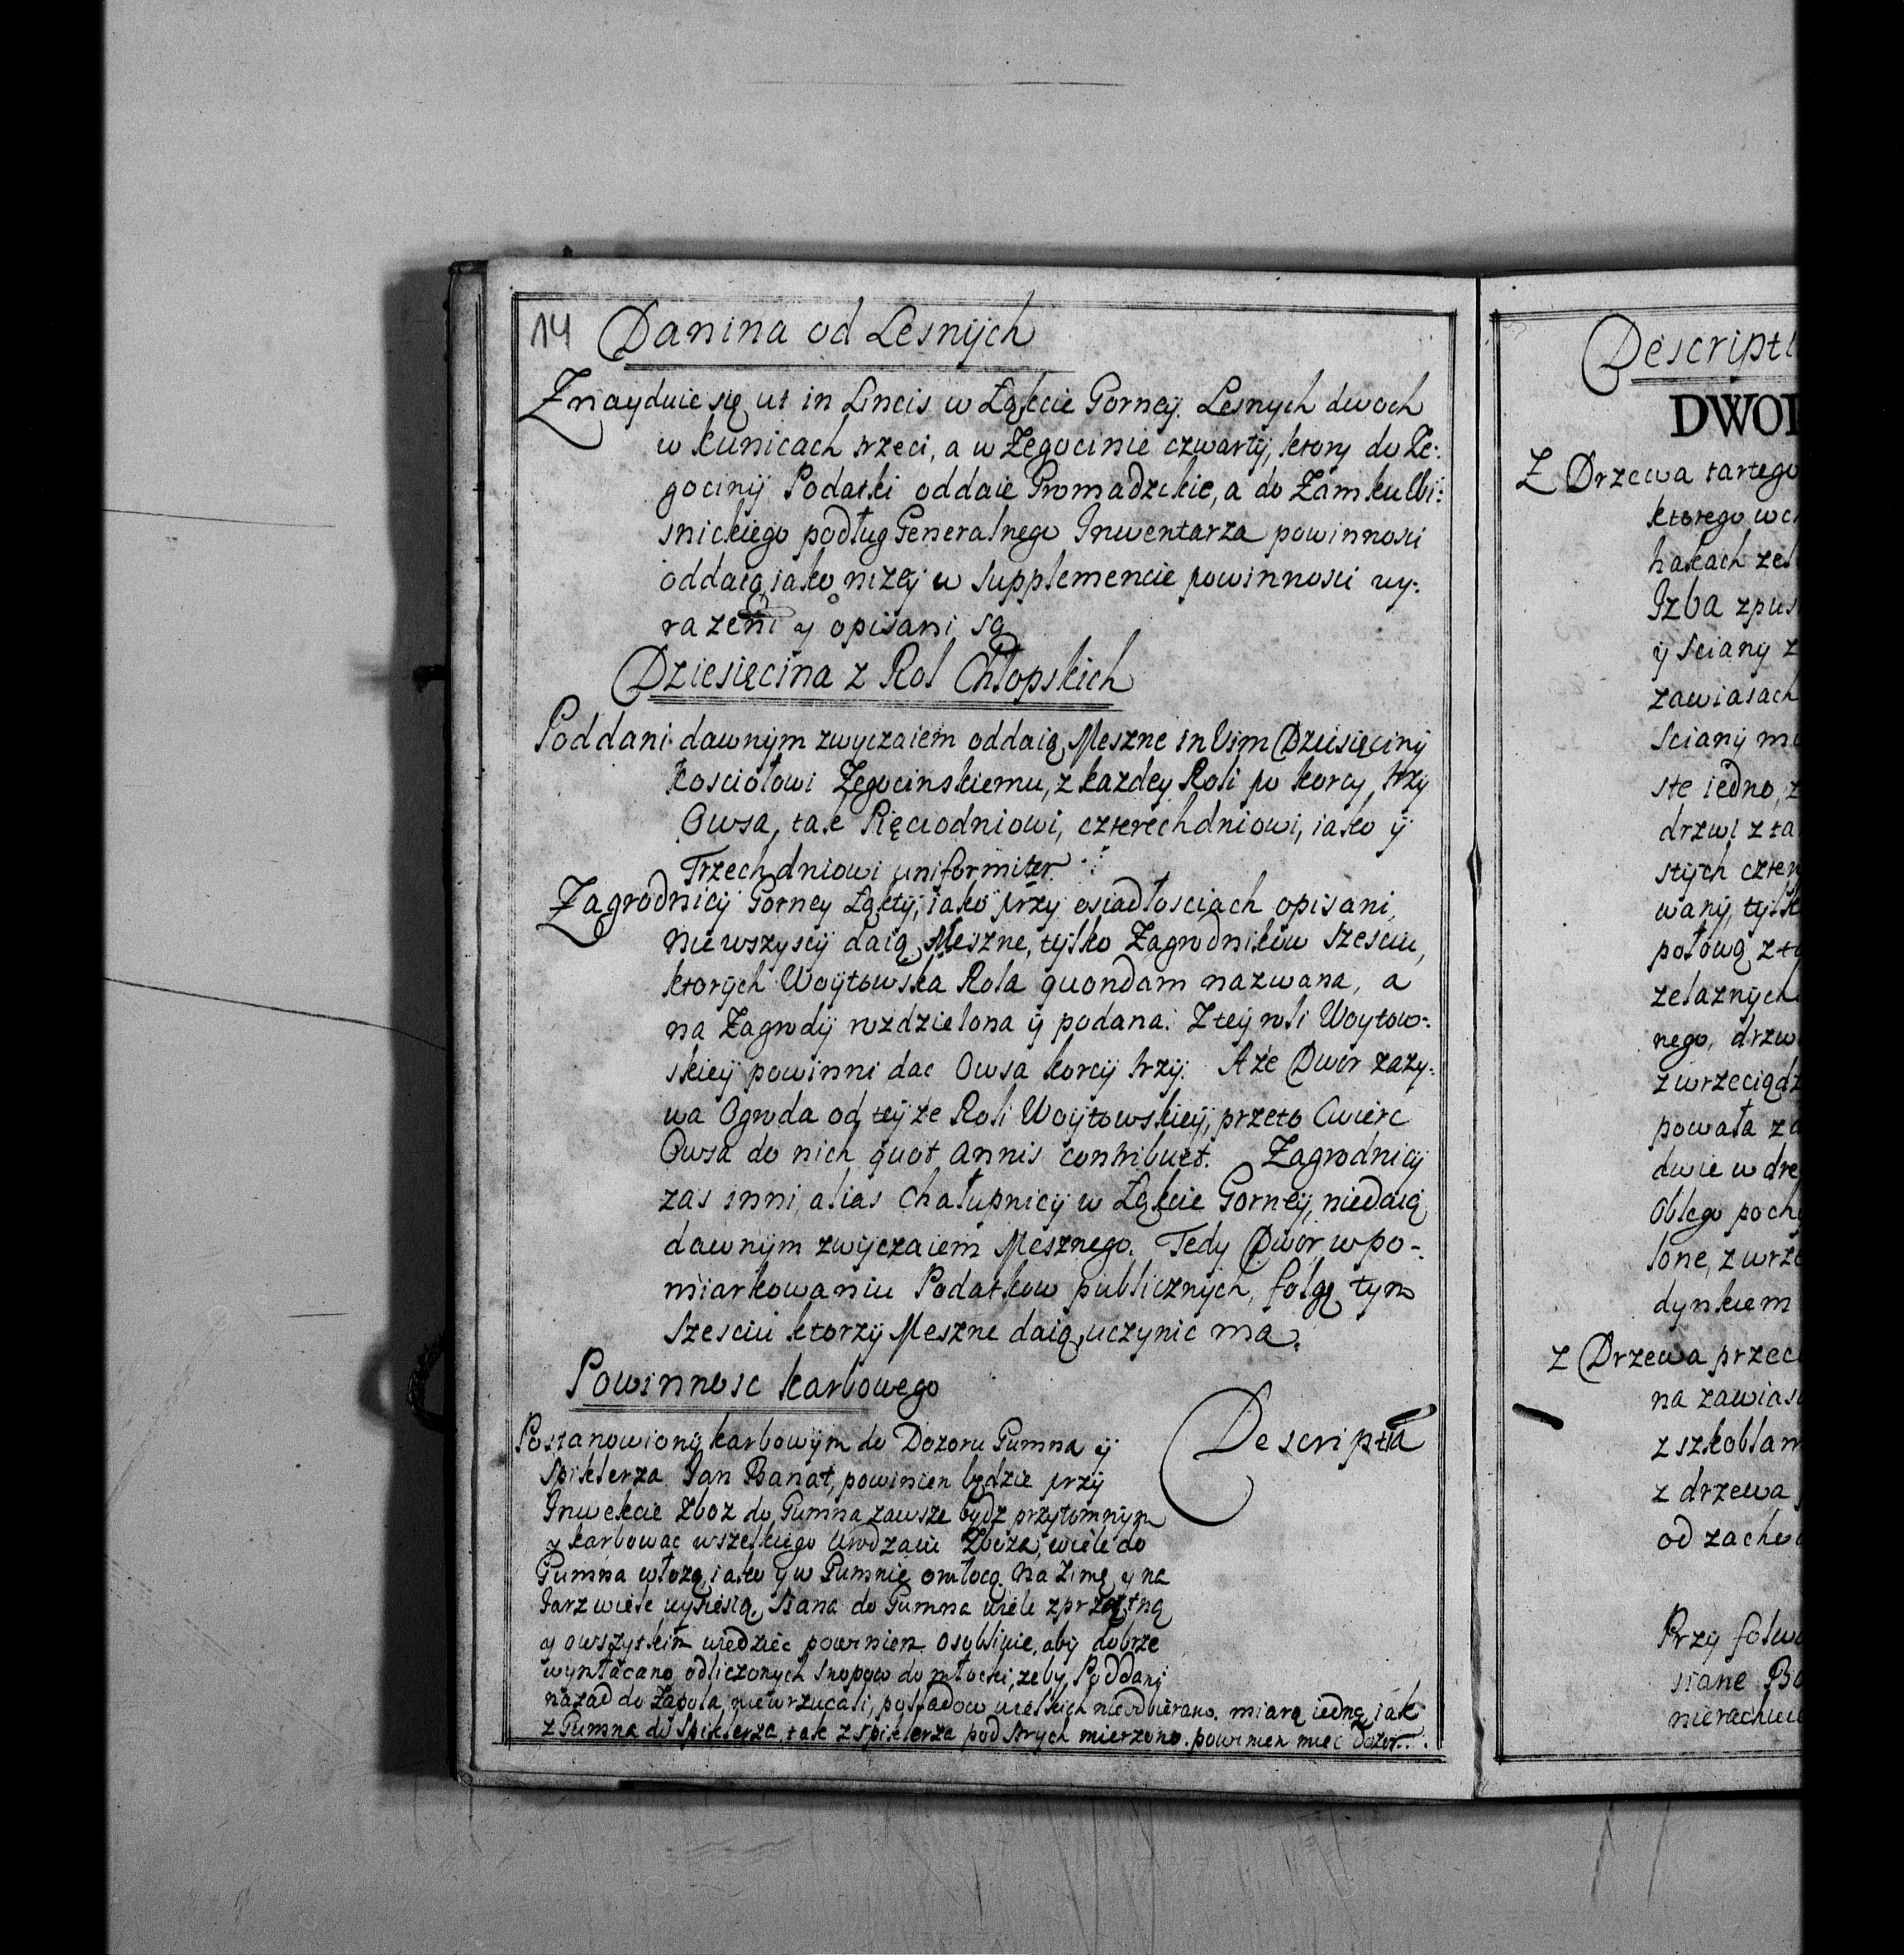 14 Danina od Lesnÿch
Znayduie się ut in Lincis w Łąkcie Gorneÿ. Lesnych dwoch
w kunicach trzeci, a w Zegocinie czwartÿ, ktory do Ze:
gocinÿ Podatki oddaie Gromadzkie, a do Zamku Wi:
snickiego podług Generalnego Inwentarza powinnosci
oddaią, iako nizeÿ w supplemencie powinnosci wy:
razeni y opisani są
Dziesięcina z Rol Chłopskich
Poddani dawnÿm zwyczaiem oddaią Meszne in Vim Dziesięcinÿ
kosciołowi Zegocinskiemu, z kazdey Roli po korcy trzy
Owsa, tak Pięciodniowi, czterechdniowi, iako ÿ
Trzechdniowi uniformiter
Zagrodnicÿ Gorney Łąktÿ, iako przy osiadłosciach opisani,
nie wszyscÿ daią Meszne, tylko Zagrodnikow szesciu,
ktorÿch Woÿtowska Rola quondam nazwana, a
na Zagrodÿ rozdzielona ÿ podana. Z teÿ roli Woytow:
skieÿ powinni dac Owsa korcÿ trzÿ. A ze Dwor zazy:
wa Ogroda od teÿ ze Roli Woÿtowskieÿ, przeto Cwierc
Owsa do nich quot annis contribuet. Zagrodnicÿ
zas inni, alias Chałupnicÿ w Łąkcie Gorneÿ, niedaią
dawnÿm zwÿczaiem Mesznego. Tedy Dwor w po-
miarkowaniu Podatkow publicznych, folgę tym
szesciu ktorzÿ Meszne daią uczynic ma.
Powinnosc karbowego
Postanowionÿ karbowÿm do Dozoru Gumna ÿ
Spiklerza Jan Banat, powinien będzie przÿ
Inwekcie Zboz do Gumna zawsze bydz przytomnÿm
y karbowac wszelkiego Urodzaiu Zboza, wiele do
Gumna włozą, iako ÿ w Gumnie omłocą. Na Zimę y na
Jarz wiele wysieią, siana do Gumna wiele zprzątną
y owszytkim wiedziec powinien. Osobliwie, abÿ dobrze
wymłacano odliczonych snopow do młocki, zeby Poddani
nazad do Zapola niewrzucali, posladow wielkich nieodbierano, miarą iedną iak
z Gumna do Spiklerza, tak z Spiklerza pod strych mierzono. powinien miec dozor.
Descriptia
Descripti
DWOR
Z Drzewa tartego
ktorego
hakach
Izba
y sciany z
zawiasach
scianÿ
ste iedno, z
drzwi z
stÿch
wanÿ,
połową z
zelaznÿch
nego,
z
powała
dwie w
Oblego
lone, z
dynkiem
z Drzewa
na
z
z drzewa
od
Przy
siane